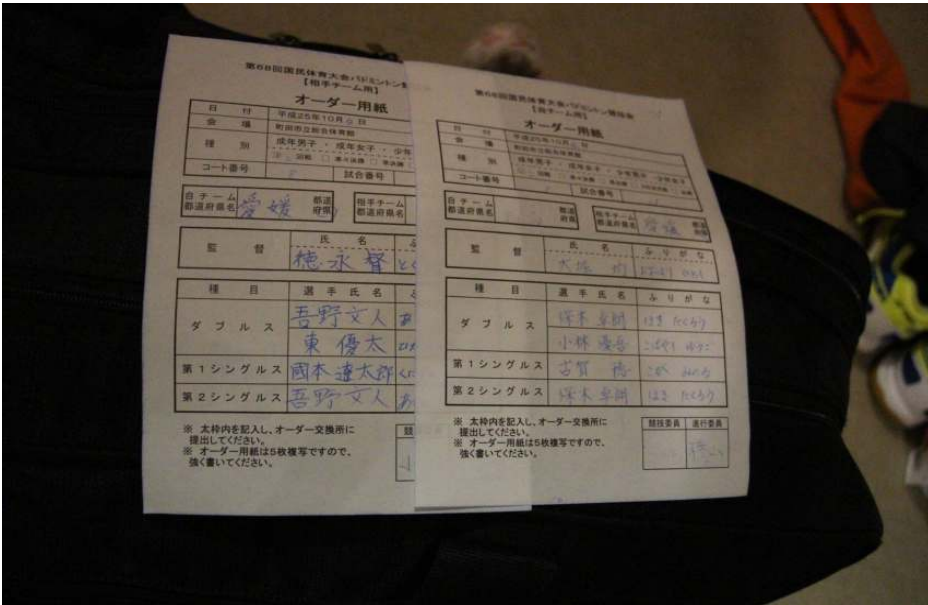 第68回国民体育大会バドミントン競
【相手チーム用】
オーダー用紙
日 付 平成25年10月 日
会 場 町田市立総合体育館
種 別 成年男子 ・ 成年女子 ・ 少年
回戦 □ 準々決勝 □ 準決勝
コート番号 試合番号
自チーム都道府県名 愛媛 都道府県 相手チーム都道府県名
監 督 氏 名
徳永 督 とく
種 目 選 手 氏 名
ダ ブ ル ス 吾野文人 あ
東 優太
第1シングルス 國本遼太郎
第2シングルス 吾野文人 あ
※ 太枠内を記入し、オーダー交換所に
提出してください。
※ オーダー用紙は5枚複写ですので、
強く書いてください。
競
第68回国民体育大会バドミントン競技会
【自チーム用】
オーダー用紙
日 付 平成25年10月 日
会 場 町田市立総合体育館
種 別 成年男子 ・ 成年女子 ・ 少年男子 ・ 少年女子
回戦 □ 準々決勝 □ 準決勝
コート番号 試合番号
自チーム都道府県名 都道府県 相手チーム都道府県名 愛媛 都道府県
監 督 氏 名 ふ り が な
大堀 均 おおほり ひとし
種 目 選 手 氏 名 ふ り が な
ダ ブ ル ス 塚本 はま たくろう
小林 優吾 こばやし ゆうご
第1シングルス 古賀 こが
第2シングルス はま たくろう
※ 太枠内を記入し、オーダー交換所に
提出してください。
※ オーダー用紙は5枚複写ですので、
強く書いてください。
競技委員 進行委員